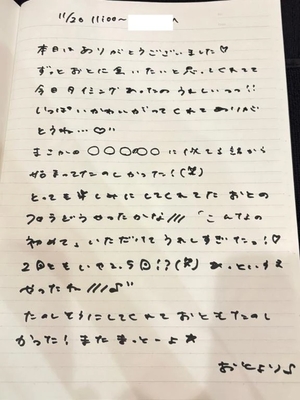 11/20 11:00〜 へ
本日はありがとうございました♡
ずっとおとに会いたいと思ってくれてて
今日タイミングあったのうれしいっっ!!
いっぱいかわいがってくれてありが
とうね…♡"
まさかの〇〇〇〇〇に似てる話から
始まってたのしかった!(笑)
とっても楽しみにしてくれてた おとの
フロうどうやったかな///「こんなの
初めて」いただけてうれしすぎたっ!♡
2回ともいや2.5回!?(笑) あっというま
やったね///♪"
たのしそうにしてくれておともたのし
かった! またまっとーよ☆
おとより♪